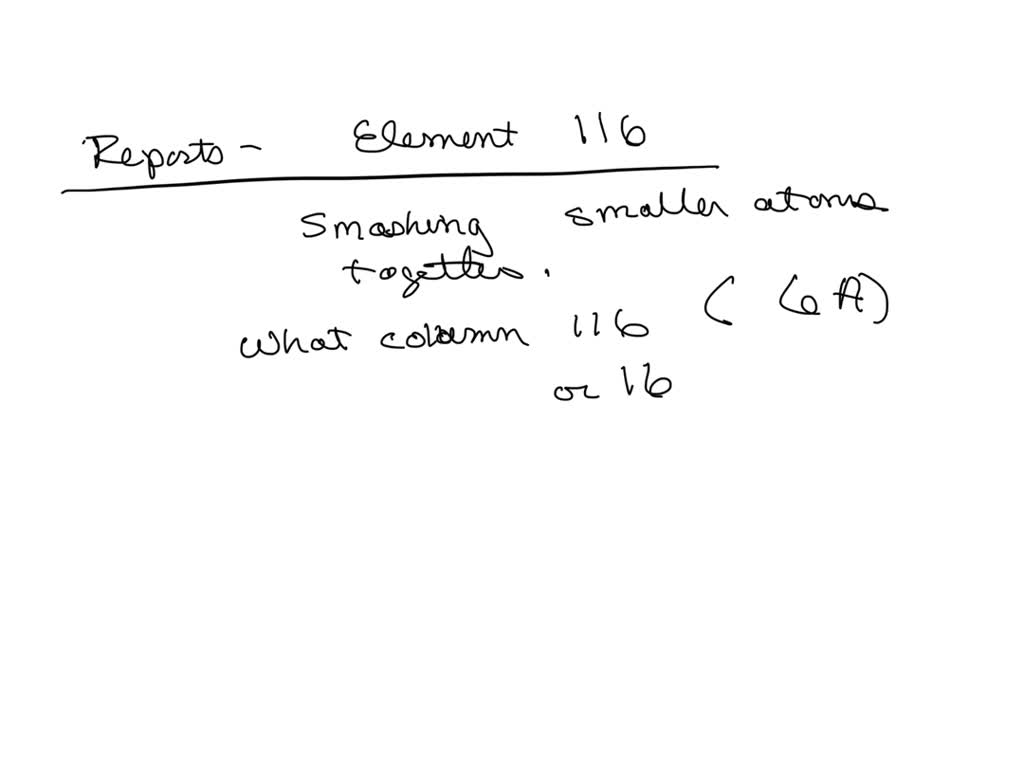 Reports - Element 116
Smashing smaller atoms
together.
What column 116 (6A)
or 16